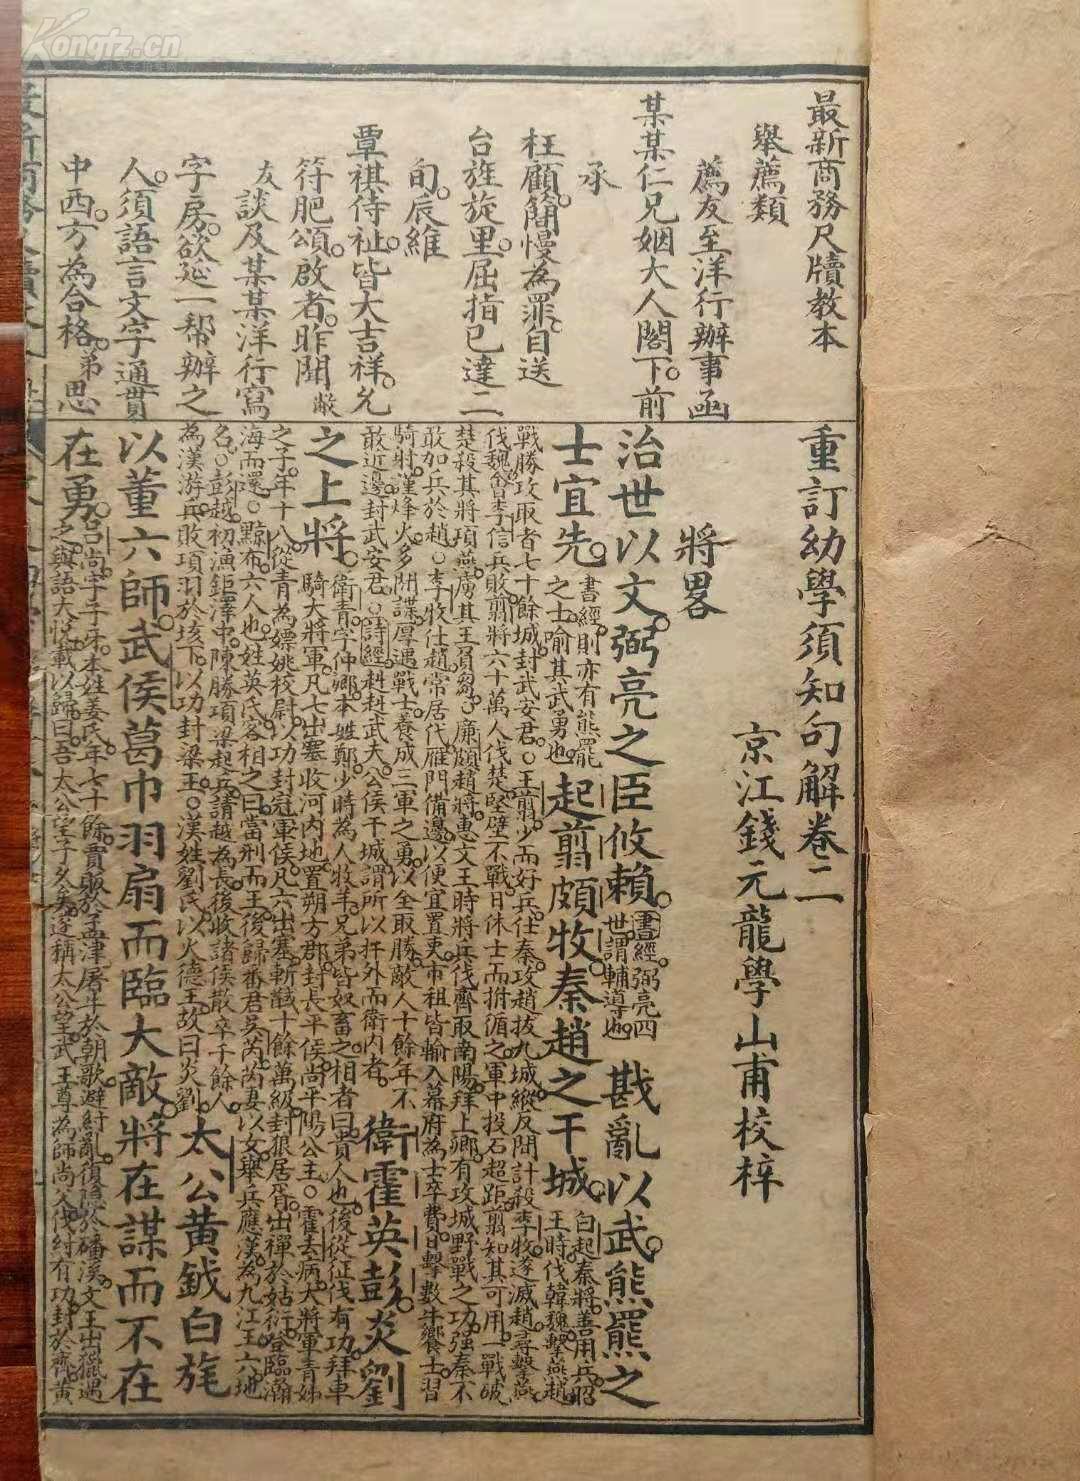 最新商務尺牘教本
舉薦類
薦友至洋行辦事函
某某仁兄姻大人閣下。前
承
枉顧。簡慢為罪。自送
台旌旋里。屈指已達二
旬。辰維
覃祺侍祉。皆大吉祥。允
符肥頌。啟者。昨聞敝
友談及某某洋行寫
字房。欲延一帮辦之
人。須語言文字通貫
中西。方為合格。弟思
重訂幼學須知句解卷二
京江錢元龍學山甫校梓
將畧
治世以文。弼亮之臣攸賴。書經弼亮四世。謂輔導也 戡亂以武。熊羆之
士宜先。書經則亦有熊羆之士喻其武勇也 起翦頗牧。秦趙之干城。白起秦將善用兵昭王時伐韓魏擊燕趙
戰勝攻取者七十餘城封武安君。○王翦少而好兵仕秦攻趙拔九城縱反間計殺李牧遂滅趙尋擊燕
伐魏會李信兵敗翦將六十萬人伐楚堅壁不戰日休士而拊循之軍中投石超距翦知其可用一戰破
楚殺其將項燕虜其王負芻。廉頗趙將惠文王時將兵伐齊取南陽拜上卿有攻城野戰之功強秦不
敢加兵於趙。李牧仕趙常居代雁門備邊以便宜置吏市租皆輸入幕府為士卒費日擊數牛饗士習
騎射謹烽火多間諜厚遇戰士養成三軍之勇以全取勝敵人十餘年不
敢近邊封武安君。○詩經赳赳武夫公侯干城謂所以扞外而衛內者 衛霍英彭。炎劉
之上將。衛青字仲卿本姓鄭少時為人牧羊兄弟皆奴畜之相者曰貴人也後從征伐有功拜車
騎大將軍凡七出塞收河內地置朔方郡封長平侯尚平陽公主。○霍去病大將軍青姊
之子年十八從青為嫖姚校尉以功封冠軍侯凡六出塞斬馘十餘萬級封狼居胥山禪於姑衍登臨瀚
海而還。○黥布六人也姓英氏客相之曰當刑而王後歸番君吳芮芮妻以女舉兵應漢為九江王六地
名。○彭越初漁鉅澤中陳勝項梁起兵請越為長後收諸侯散卒千餘人
為漢游兵敗項羽於垓下以功封梁王。○漢姓劉氏以火德王故曰炎劉 太公黃鉞白旄
以董六師。武侯葛巾羽扇而臨大敵。將在謀而不在
在勇。呂尚字子牙本姓姜氏年七十餘賣販於孟津屠牛於朝歌避紂亂復隱於磻溪文王出獵遇
之與語大悅載以歸曰吾太公望子久矣遂稱太公望武王尊為師尚父伐紂有功封於齊黃
Kongfz.cn